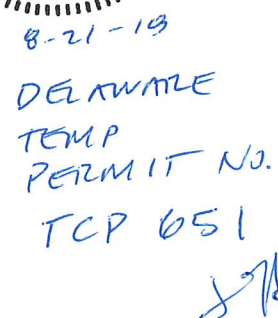 8-21-19
DELAWARE
TEMP
PERMIT NO.
TCP 651